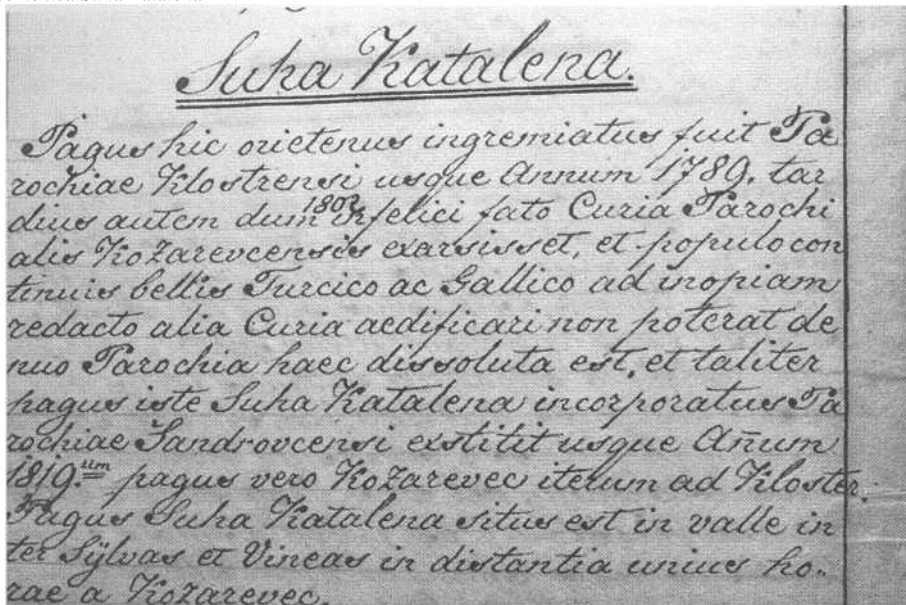 Suha Katalena.
Pagus hic orietenus ingremiatus fuit Pa
rochiae Klostrensi usque Annum 1789. tar
dius autem dum 1802 infelici fato Curia Parochi
alis Kozarevcensis exarsisset, et populo con
tinuis bellis Turcico ac Gallico ad inopiam
redacto alia Curia aedificari non poterat de
nuo Parochia haec dissoluta est, et taliter
pagus iste Suha Katalena incorporatus Pa
rochiae Sandrovcensi exstitit usque Añum
1819.um pagus vero Kozarevec iterum ad Kloster.
Pagus Suha Katalena situs est in valle in
ter Sÿlvas et Vineas in distantia unius ho-
rae a Kozarevec.